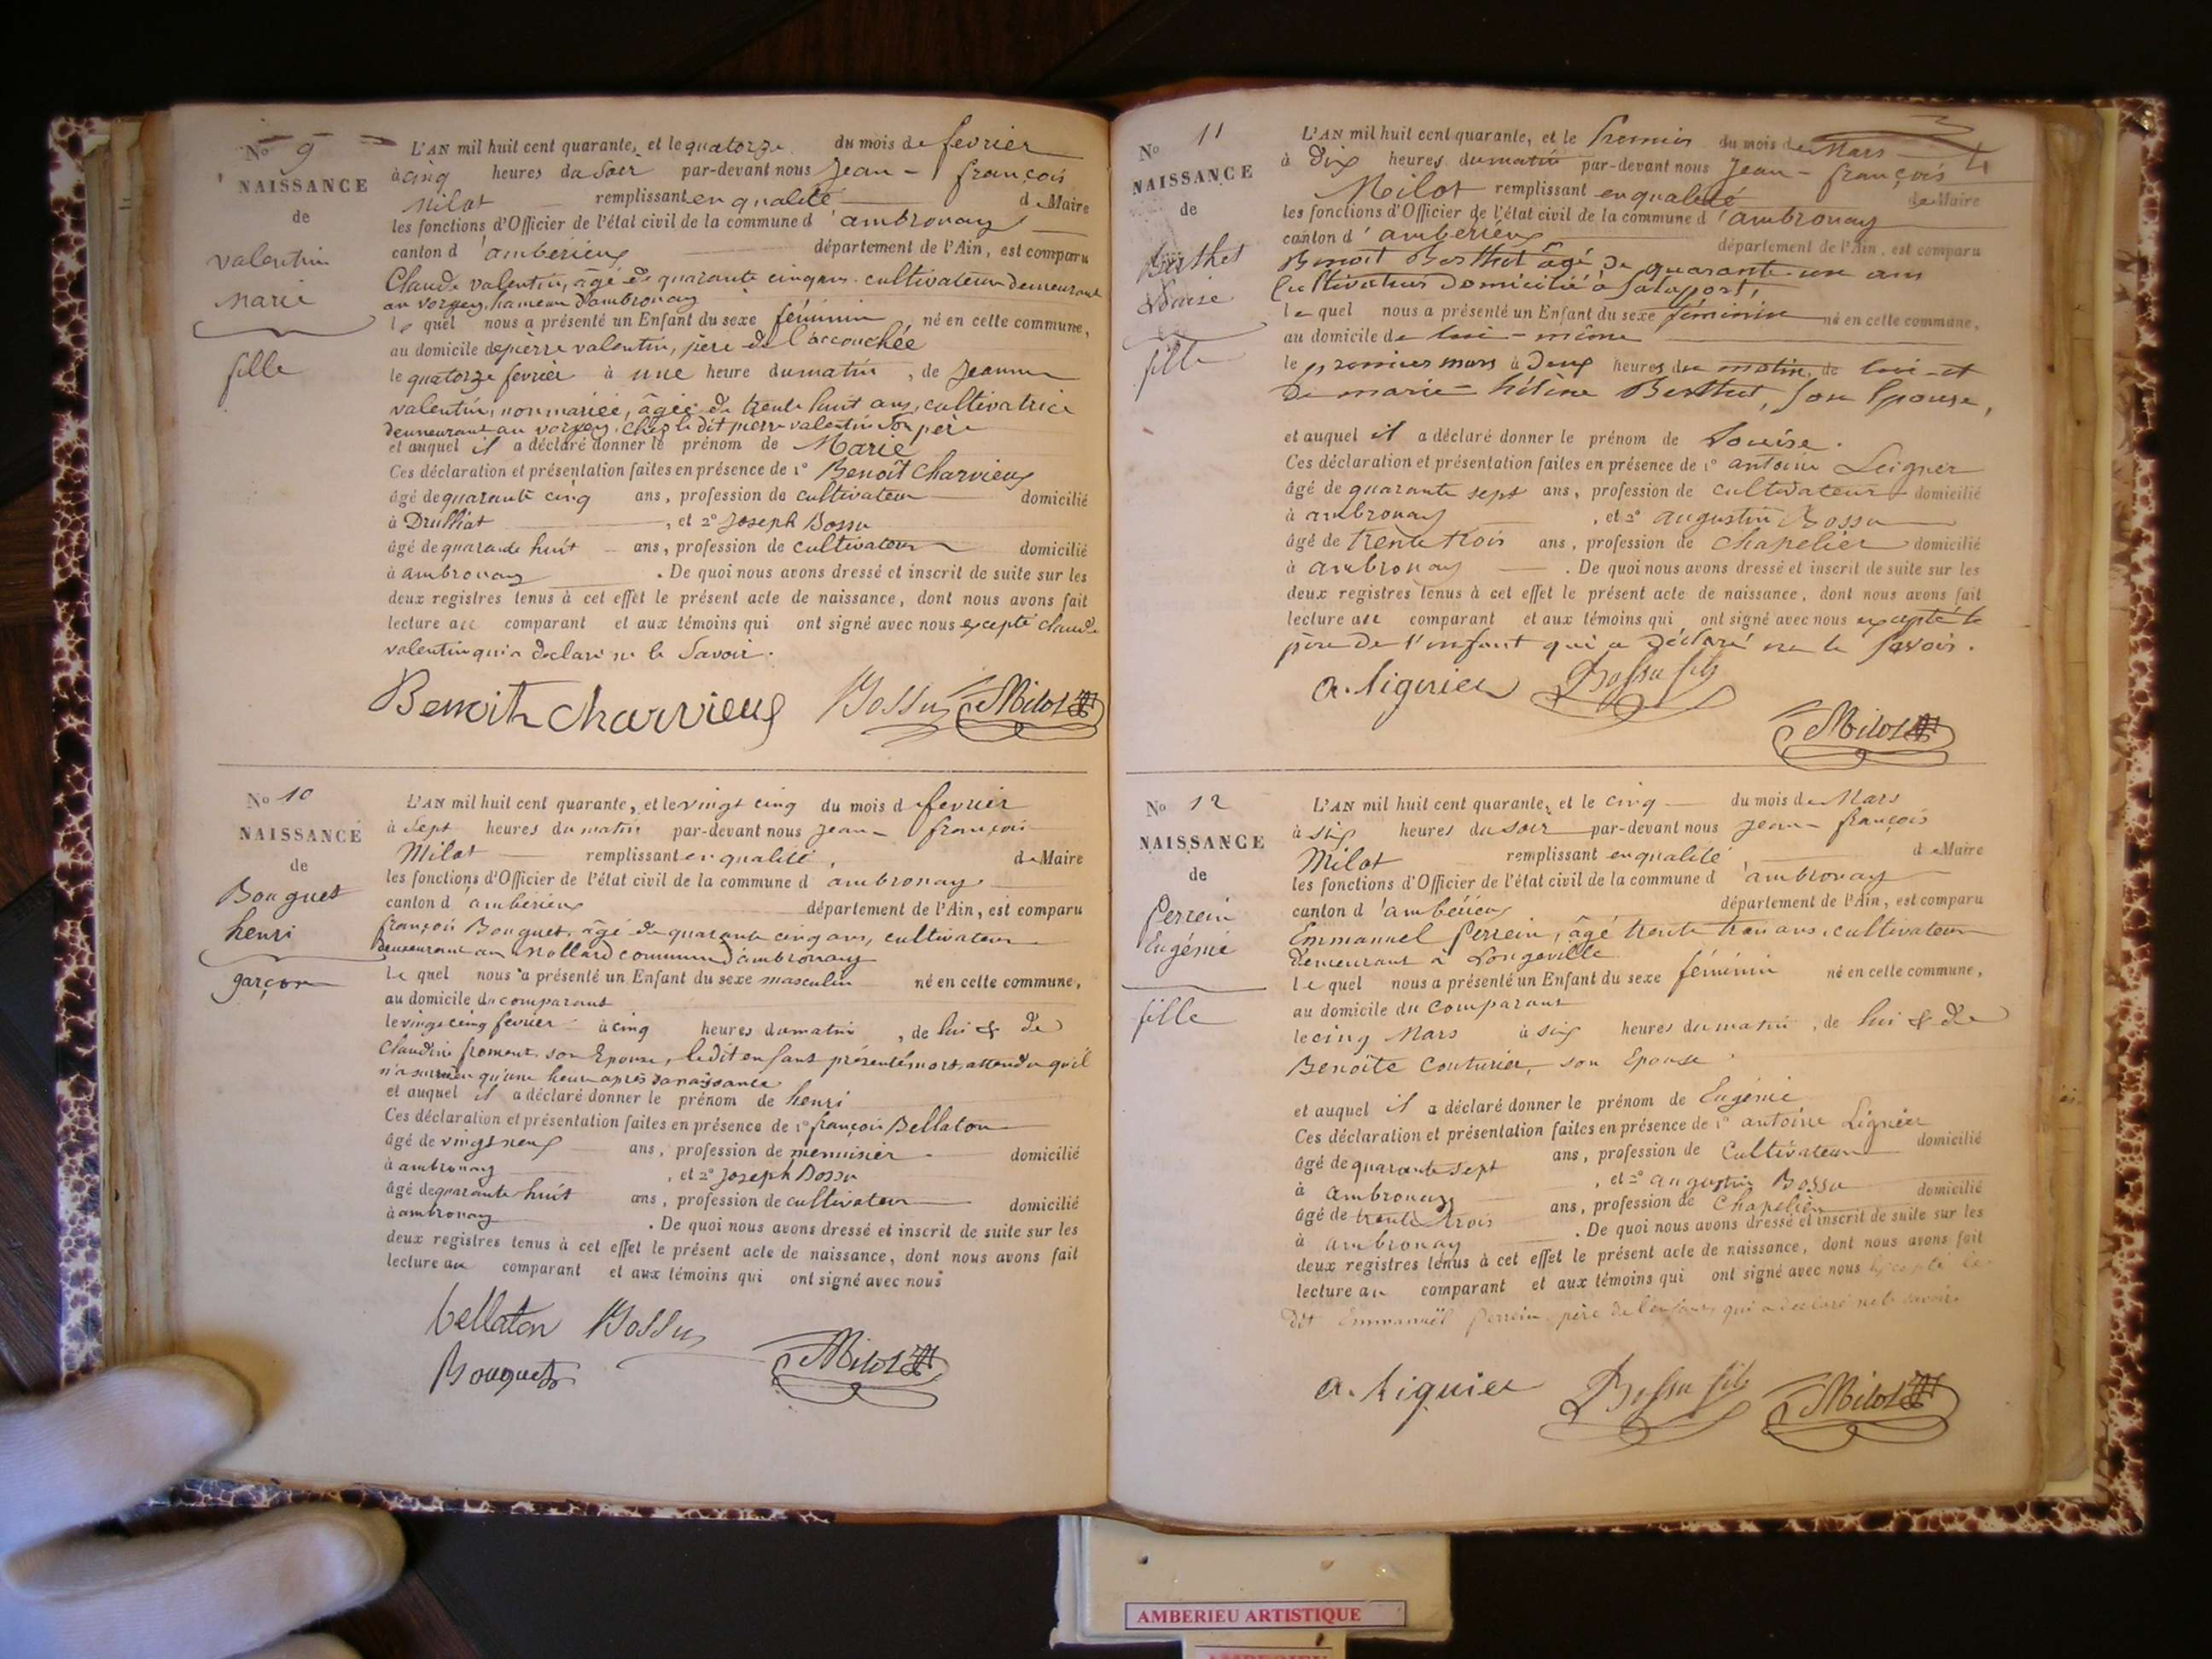 No 9
NAISSANCE
de
valentin
Marie
fille
L'AN mil huit cent quarante, et le quatorze du mois de fevrier
à cinq heures du soir par-devant nous Jean - françois
Milot remplissant en qualité de Maire
les fonctions d'Officier de l'état civil de la commune d'ambronay
canton d'ambérieux département de l'Ain, est comparu
Claude valentin, âgé de quarante cinq ans cultivateur demeurant
au vorgey, hameau d'ambronay
le quel nous a présenté un Enfant du sexe féminin né en cette commune,
au domicile de pierre valentin, père de l'accouchée
le quatorze fevrier à une heure du matin, de Jeanne
valentin, non mariée, âgée de trente huit ans, cultivatrice
demeurant au vorgey, chez le dit pierre valentin son père
et auquel il a déclaré donner le prénom de Marie
Ces déclaration et présentation faites en présence de 1° Benoît Charvieux
âgé de quarante cinq ans, profession de cultivateur domicilié
à Druilliat, et 2° Joseph Bossu
âgé de quarante huit ans, profession de cultivateur domicilié
à ambronay. De quoi nous avons dressé et inscrit de suite sur les
deux registres tenus à cet effet le présent acte de naissance, dont nous avons fait
lecture au comparant et aux témoins qui ont signé avec nous excepté claude
valentin qui a declaré ne le Savoir.
Benoit charvieux Bossu Milot
No 10
NAISSANCE
de
Bouguet
henri
garçon
L'AN mil huit cent quarante, et le vingt cinq du mois de fevrier
à sept heures du matin par-devant nous Jean - françois
Milot remplissant en qualité, de Maire
les fonctions d'Officier de l'état civil de la commune d ambronay
canton d'ambérieux département de l'Ain, est comparu
françois Bouguet, âgé de quarante cinq ans, cultivateur
demeurant au Mollard commune d'ambronay
le quel nous a présenté un Enfant du sexe masculin né en cette commune,
au domicile du comparant
le vingt cinq fevrier à cinq heures du matin, de lui & de
Claudine froment son Epouse, le dit enfant présenté mort attendu qu'il
n'a survécu qu'une heure après sa naissance
et auquel il a déclaré donner le prénom de henri
Ces déclaration et présentation faites en présence de 1° françois Bellaton
âgé de vingt neuf ans, profession de menuisier domicilié
à ambronay, et 2° Joseph Bossu
âgé de quarante huit ans, profession de cultivateur domicilié
à ambronay. De quoi nous avons dressé et inscrit de suite sur les
deux registres tenus à cet effet le présent acte de naissance, dont nous avons fait
lecture au comparant et aux témoins qui ont signé avec nous
bellaton Bossu
Bouguet Milot
No 11
NAISSANCE
de
Berthet
Louise
fille
L'AN mil huit cent quarante, et le Premier du mois de Mars
à dix heures du matin par-devant nous Jean - françois
Milot remplissant en qualité de Maire
les fonctions d'Officier de l'état civil de la commune d'ambronay
canton d'ambérieux département de l'Ain, est comparu
Benoit Berthet âgé de quarante un ans
Cultivateur domicilié à
le quel nous a présenté un Enfant du sexe féminin né en cette commune,
au domicile de lui - même
le premier mars à deux heures du matin, de lui et
de marie - hélène Berthet, son Epouse,
et auquel il a déclaré donner le prénom de Louise.
Ces déclaration et présentation faites en présence de 1° antoine Leigner
âgé de quarante sept ans, profession de cultivateur domicilié
à ambronay, et 2° augustin Bossu
âgé de trente trois ans, profession de chapelier domicilié
à ambronay. De quoi nous avons dressé et inscrit de suite sur les
deux registres tenus à cet effet le présent acte de naissance, dont nous avons fait
lecture au comparant et aux témoins qui ont signé avec nous excepté le
père de l'enfant qui a déclaré ne le savoir.
a. liguier Bossu fils
Milot
No 12
NAISSANCE
de
Perrein
Eugénie
fille
L'AN mil huit cent quarante, et le cinq du mois de Mars
à six heures du soir par-devant nous Jean - françois
Milot remplissant en qualité, de Maire
les fonctions d'Officier de l'état civil de la commune d'ambronay
canton d'ambérieux département de l'Ain, est comparu
Emmanuel Perrein, âgé trente trois ans, cultivateur
demeurant à Longeville
le quel nous a présenté un Enfant du sexe féminin né en cette commune,
au domicile du Comparant
le cinq Mars à six heures du matin, de lui & de
Benoîte Couturier, son Epouse
et auquel il a déclaré donner le prénom de Eugénie
Ces déclaration et présentation faites en présence de 1° antoine Lignier
âgé de quarante sept ans, profession de Cultivateur domicilié
à ambronay, et 2° augustin Bossu
âgé de trente trois ans, profession de Chapelier domicilié
à ambronay. De quoi nous avons dressé et inscrit de suite sur les
deux registres tenus à cet effet le présent acte de naissance, dont nous avons fait
lecture au comparant et aux témoins qui ont signé avec nous excepté le
dit Emmanuël Perrein père de l'enfant qui a déclaré ne le savoir.
a. liguier Bossu fils Milot
AMBERIEU ARTISTIQUE